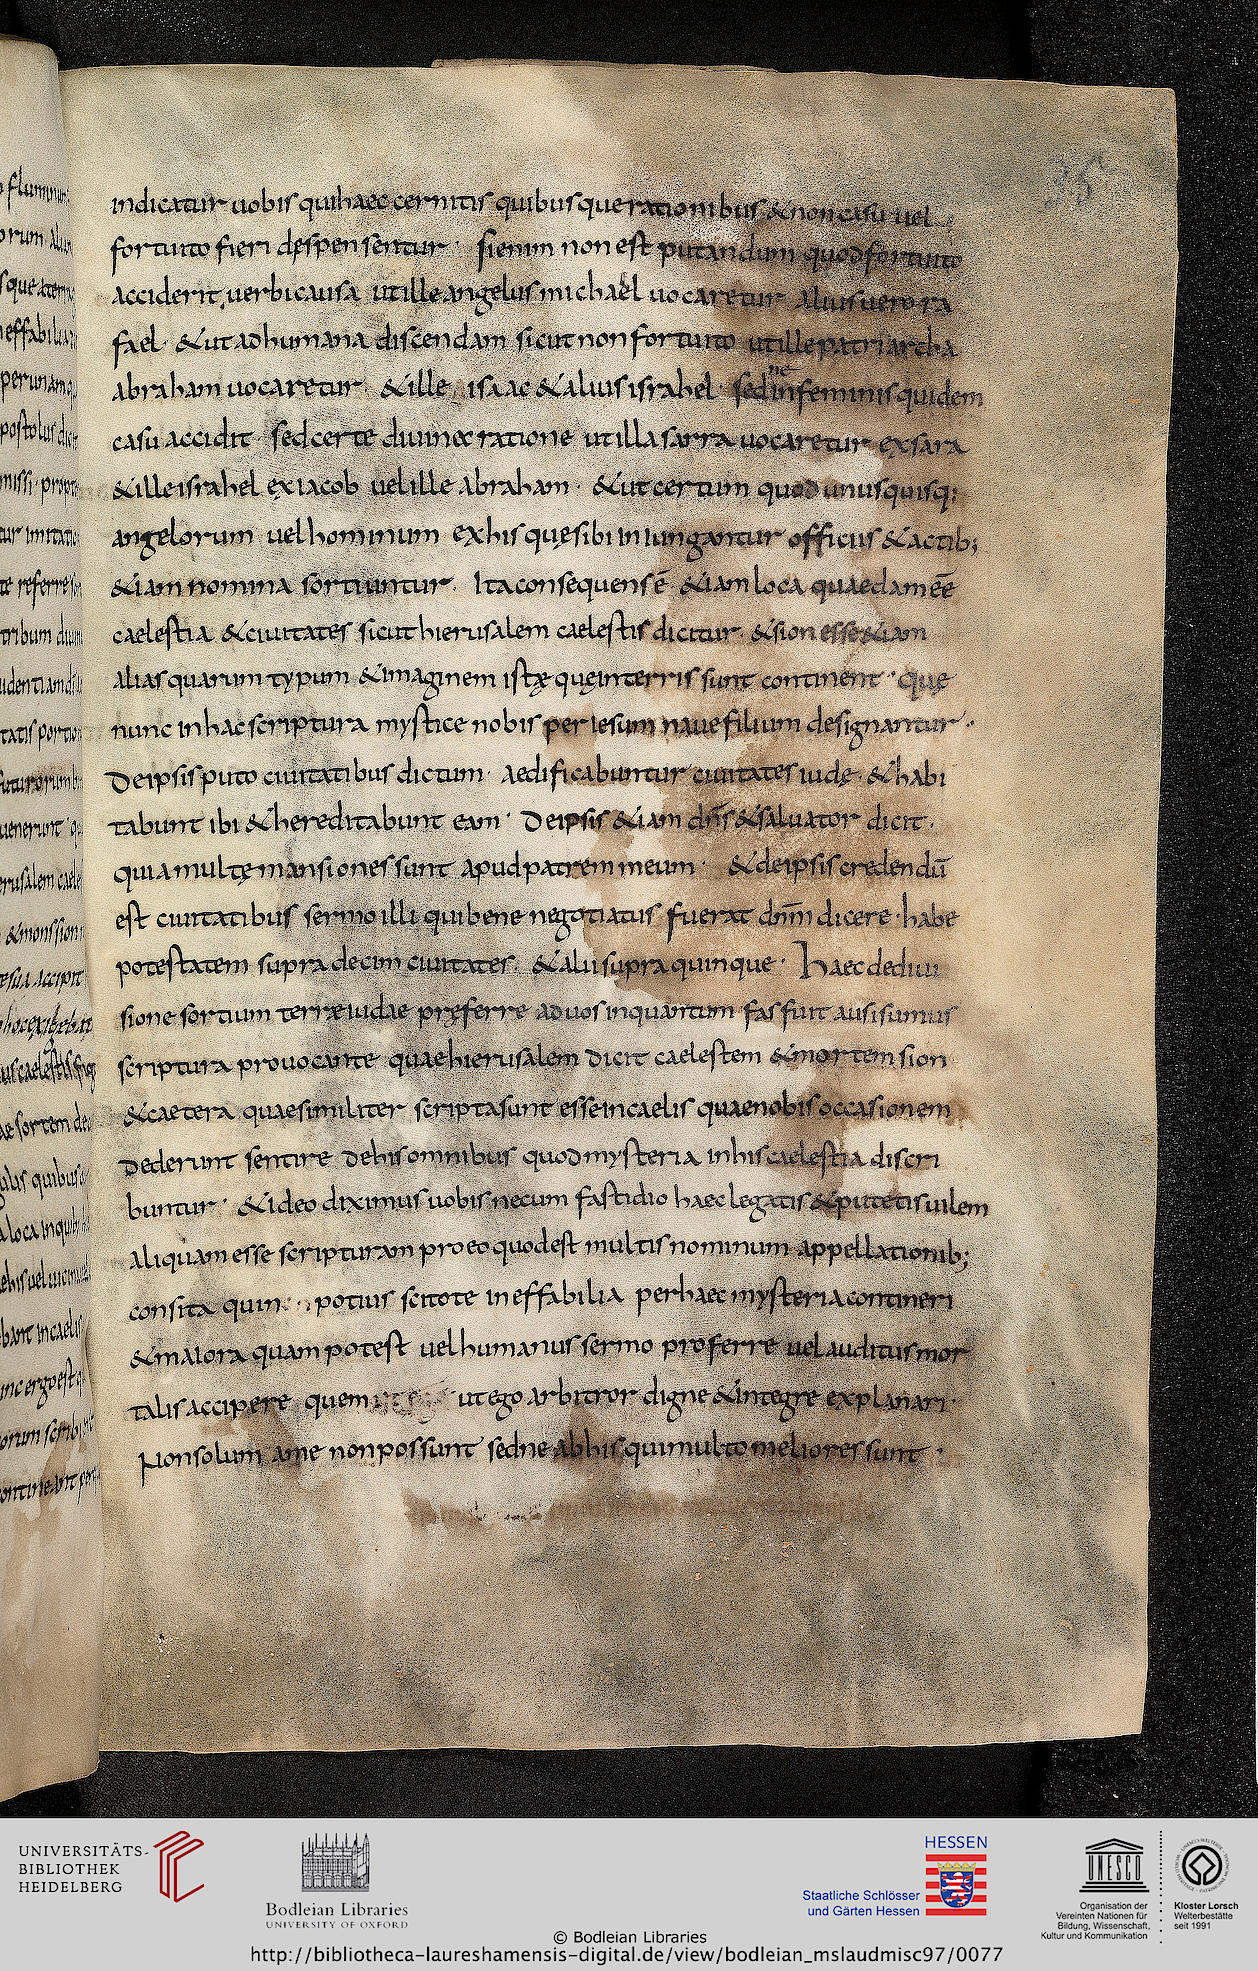 35
indicatur uobis qui haec cernitis quibusque rationibus & non casu uel
fortuito fieri despensentur · si enim non est putandum quod fortuito
acciderit, uerbi causa ut ille angelus michael uocaretur alius uero ra
fael · & ut ad humana discendam sicut non fortuito ut ille patriarcha
abraham uocaretur · & ille isaac & alius israhel · sed ne in feminis quidem
casu accidit · sed certe diuinae ratione ut illa sarra uocaretur ex sara
& ille israhel ex iacob uel ille abraham · & ut certum quod unusquisq;
angelorum uel hominum ex his quę sibi iniungantur officiis & actib;
&iam nomina sortiuntur · Ita consequens ē &iam loca quaedam eē
caelestia & ciuitates sicut hierusalem caelestis dicitur · & sion esse &iam
alias quarum typum & imaginem istę quę in terris sunt continent · quę
nunc in hac scriptura mystice nobis per iesum naue filium designantur ·
De ipsis puto ciuitatibus dictum · aedificabuntur ciuitates iudę · & habi
tabunt ibi & hereditabunt eam · De ipsis &iam dn̄s & saluator dicit ·
quia multę mansiones sunt apud patrem meum · & de ipsis credendū
est ciuitatibus sermo illi qui bene negotiatus fuerat dn̄m dicere · habe
potestatem supra decim ciuitates · & alii supra quinque · Haec de diui
sione sortium terrae iudae pręferre ad uos inquantum fas fuit ausi sumus
scriptura prouocante quae hierusalem dicit caelestem & mortem sion
& caetera quae similiter scripta sunt esse in caelis quae nobis occasionem
dederunt sentire de his omnibus quod mysteria in his caelestia discri
buntur · & ideo diximus uobis ne cum fastidio haec legatis & putetis uilem
aliquam esse scripturam pro eo quod est multis nominum appellationib;
consita quin potius scitote ineffabilia per haec mysteria contineri
& maiora quam potest uel humanus sermo proferre uel auditus mor
talis accipere que ut ego arbitror digne & integre explanari ·
Non solum a me non possunt sed ne ab his qui multo meliores sunt ·
UNIVERSITÄTS-
BIBLIOTHEK
HEIDELBERG
Bodleian Libraries
UNIVERSITY OF OXFORD
HESSEN
Staatliche Schlösser
und Gärten Hessen
UNESCO
Organisation der
Vereinten Nationen für
Bildung, Wissenschaft,
Kultur und Kommunikation
Kloster Lorsch
Welterbestätte
seit 1991
© Bodleian Libraries
http://bibliotheca-laureshamensis-digital.de/view/bodleian_mslaudmisc97/0077